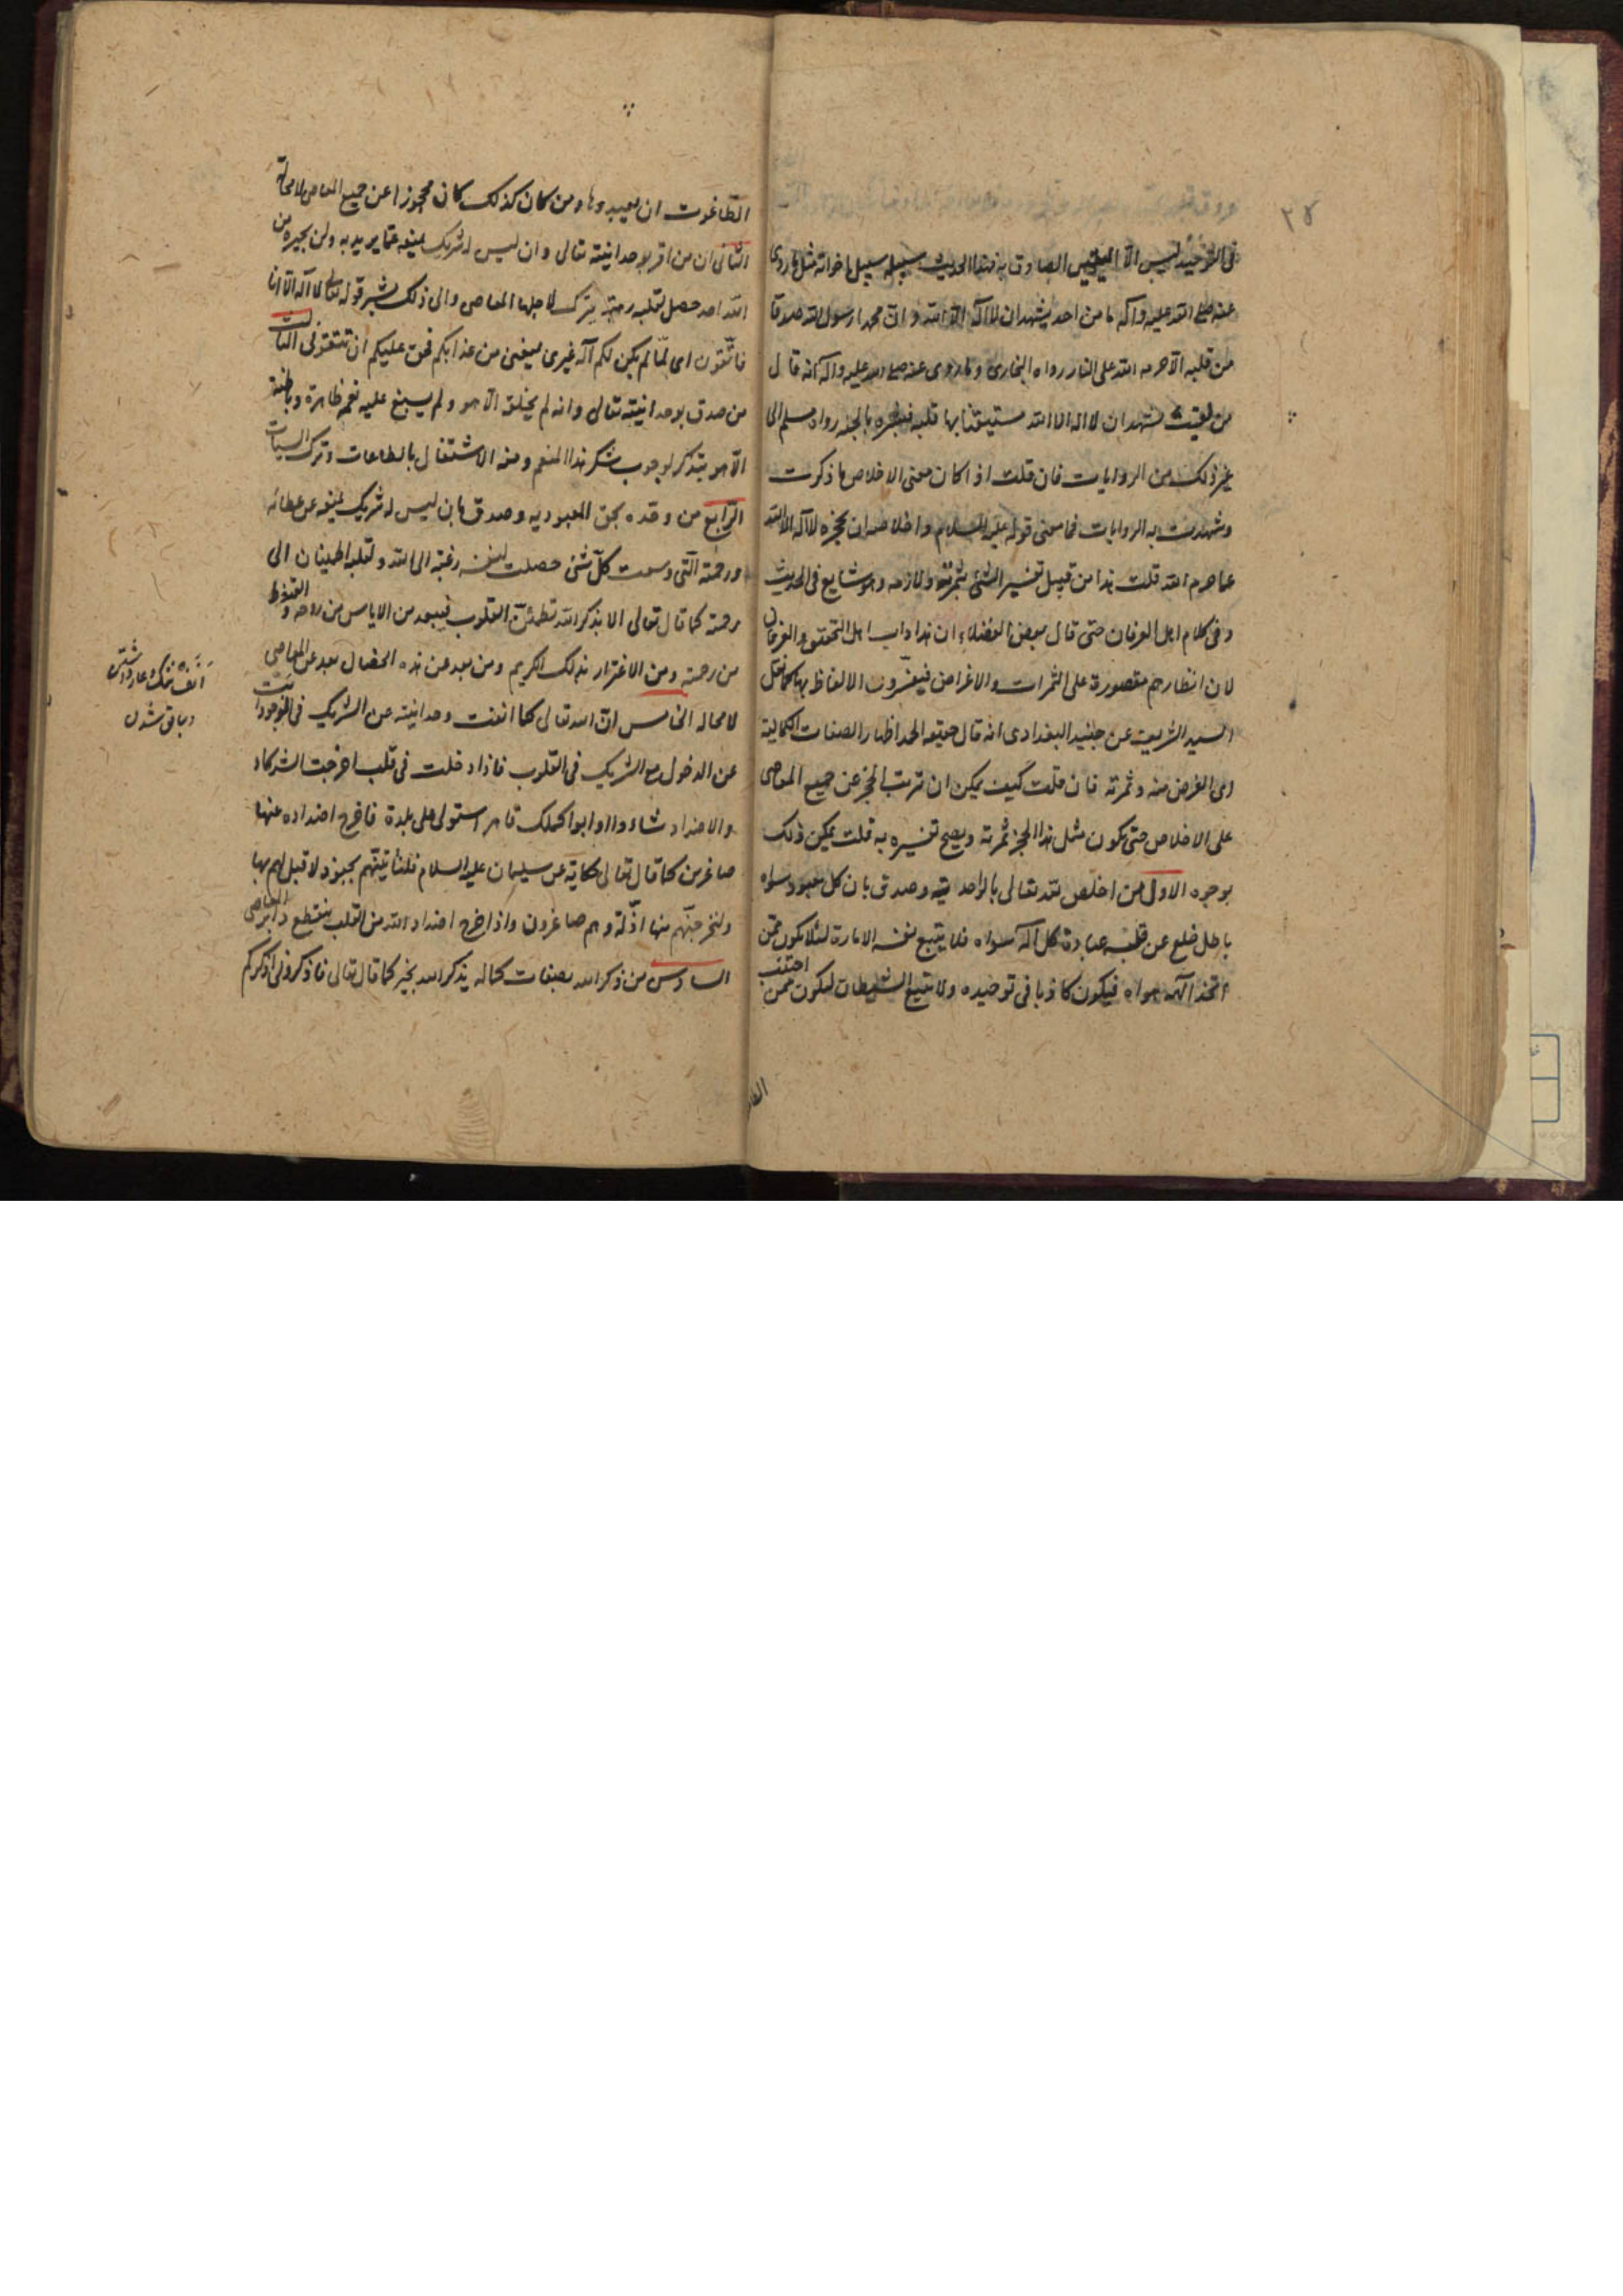 ٣٨
فى التوحيد ليس الا اليقين الصادق به فهذا الحديث سبيله سبيل اخواته مثل ما روى
عنه صلى الله عليه وآله ما من احد يشهد ان لا اله الا الله وان محمدا رسول الله صدقا
من قلبه الا حرمه الله على النار رواه البخارى وما روى عنه صلى الله عليه وآله انه قال
من لقيت يشهد ان لا اله الا الله مستيقنا بها قلبه فبشره بالجنه رواه مسلم الى
غير ذلك من الروايات فان قلت اذا كان معنى الاخلاص ما ذكرت
وشهدت به الروايات فما معنى قوله عليه السلام واخلاصه ان يحجزه لا اله الا الله
عما حرم الله قلت هذا من قبيل تفسير الشئ بثمرته ولازمه وهو شايع فى الحديث
وفى كلام اهل العرفان حتى قال بعض الفضلاء ان هذا داب اهل التحقيق والعرفان
لان انظارهم مقصورة على الثمرات والاغراض فيفسرون الالفاظ بها كما نقل
السيد الشريف عن جنيد البغدادى انه قال حقيقه الحمد اظهار الصفات الكمالية
اى الغرض منه وثمرته فان قلت كيف يمكن ان ترتب الحجز عن جميع المعاصى
على الاخلاص حتى يكون مثل هذا الحجز ثمرته ويصح تفسيره به قلت يمكن ذلك
بوجوه الاول من اخلص لله تعالى بالواحديته وصدق بان كل معبود سواه
باطل خلع عن قلبه عبادة كل اله سواه فلا يتبع نفسه الامارة لئلا يكون ممن
اتخذ الهه هواه فيكون كاذبا فى توحيده ولا يتبع الشيطان ليكون ممن اجتنب
الطا
الطاغوت ان يعبدوها ومن كان كذلك كان محجوزا عن جميع المعاصى لا محالة
الثانى ان من اقر بوحدانيته تعالى وان ليس له شريك يمنعه عما يريد به ولن يجيره من
الله احد حصل لقلبه رهبة يترك لاجلها المعاصى والى ذلك يشير قوله تعالى لا اله الا انا
فاتقون اى لما لم يكن لكم اله غيرى يمنعنى من عذابكم فحق عليكم ان تتقونى الثالث
من صدق بوحدانيته تعالى وانه لم يخلق الا هو ولم يسبغ عليه نعمه ظاهرة وباطنة
الا هو يتذكر لوجوب شكر هذا المنعم ومنه الاشتغال بالطاعات وترك السيات
الرابع من وحده بحق المعبوديه وصدق بان ليس له شريك يمنعه عن عطائه
ورحمته التى وسعت كل شئ حصلت لنفسه رغبة الى الله ولقلبه اطمينان الى
رحمته كما قال تعالى الا بذكر الله تطمئن القلوب فيبعد من الاياس من روحه والقنوط
من رحمته ومن الاغترار بذلك الكريم ومن بعد عن هذه الخصال بعد عن المعاصى
لا محاله الخامس ان الله تعالى كما انفت وحدانيته عن الشريك فى الموجودات انفت
عن الدخول مع الشريك فى القلوب فاذا دخلت فى قلب اخرجت الشركاء
والاضداد شاءوا او ابوا كملك قاهر استولى على بلدة فاخرج اضداده عنها
صاغرين كما قال تعالى حكاية عن سليمان عليه السلام فلناتينهم بجنود لا قبل لهم بها
ولنخرجنهم منها اذلة وهم صاغرون واذا خرج اضداد الله من القلب ينقطع دابر المعاصى
السادس من ذكر الله بصفات كماله يذكر الله بخير كما قال تعالى فاذكرونى اذكركم
انف ننگ و عار داشتن